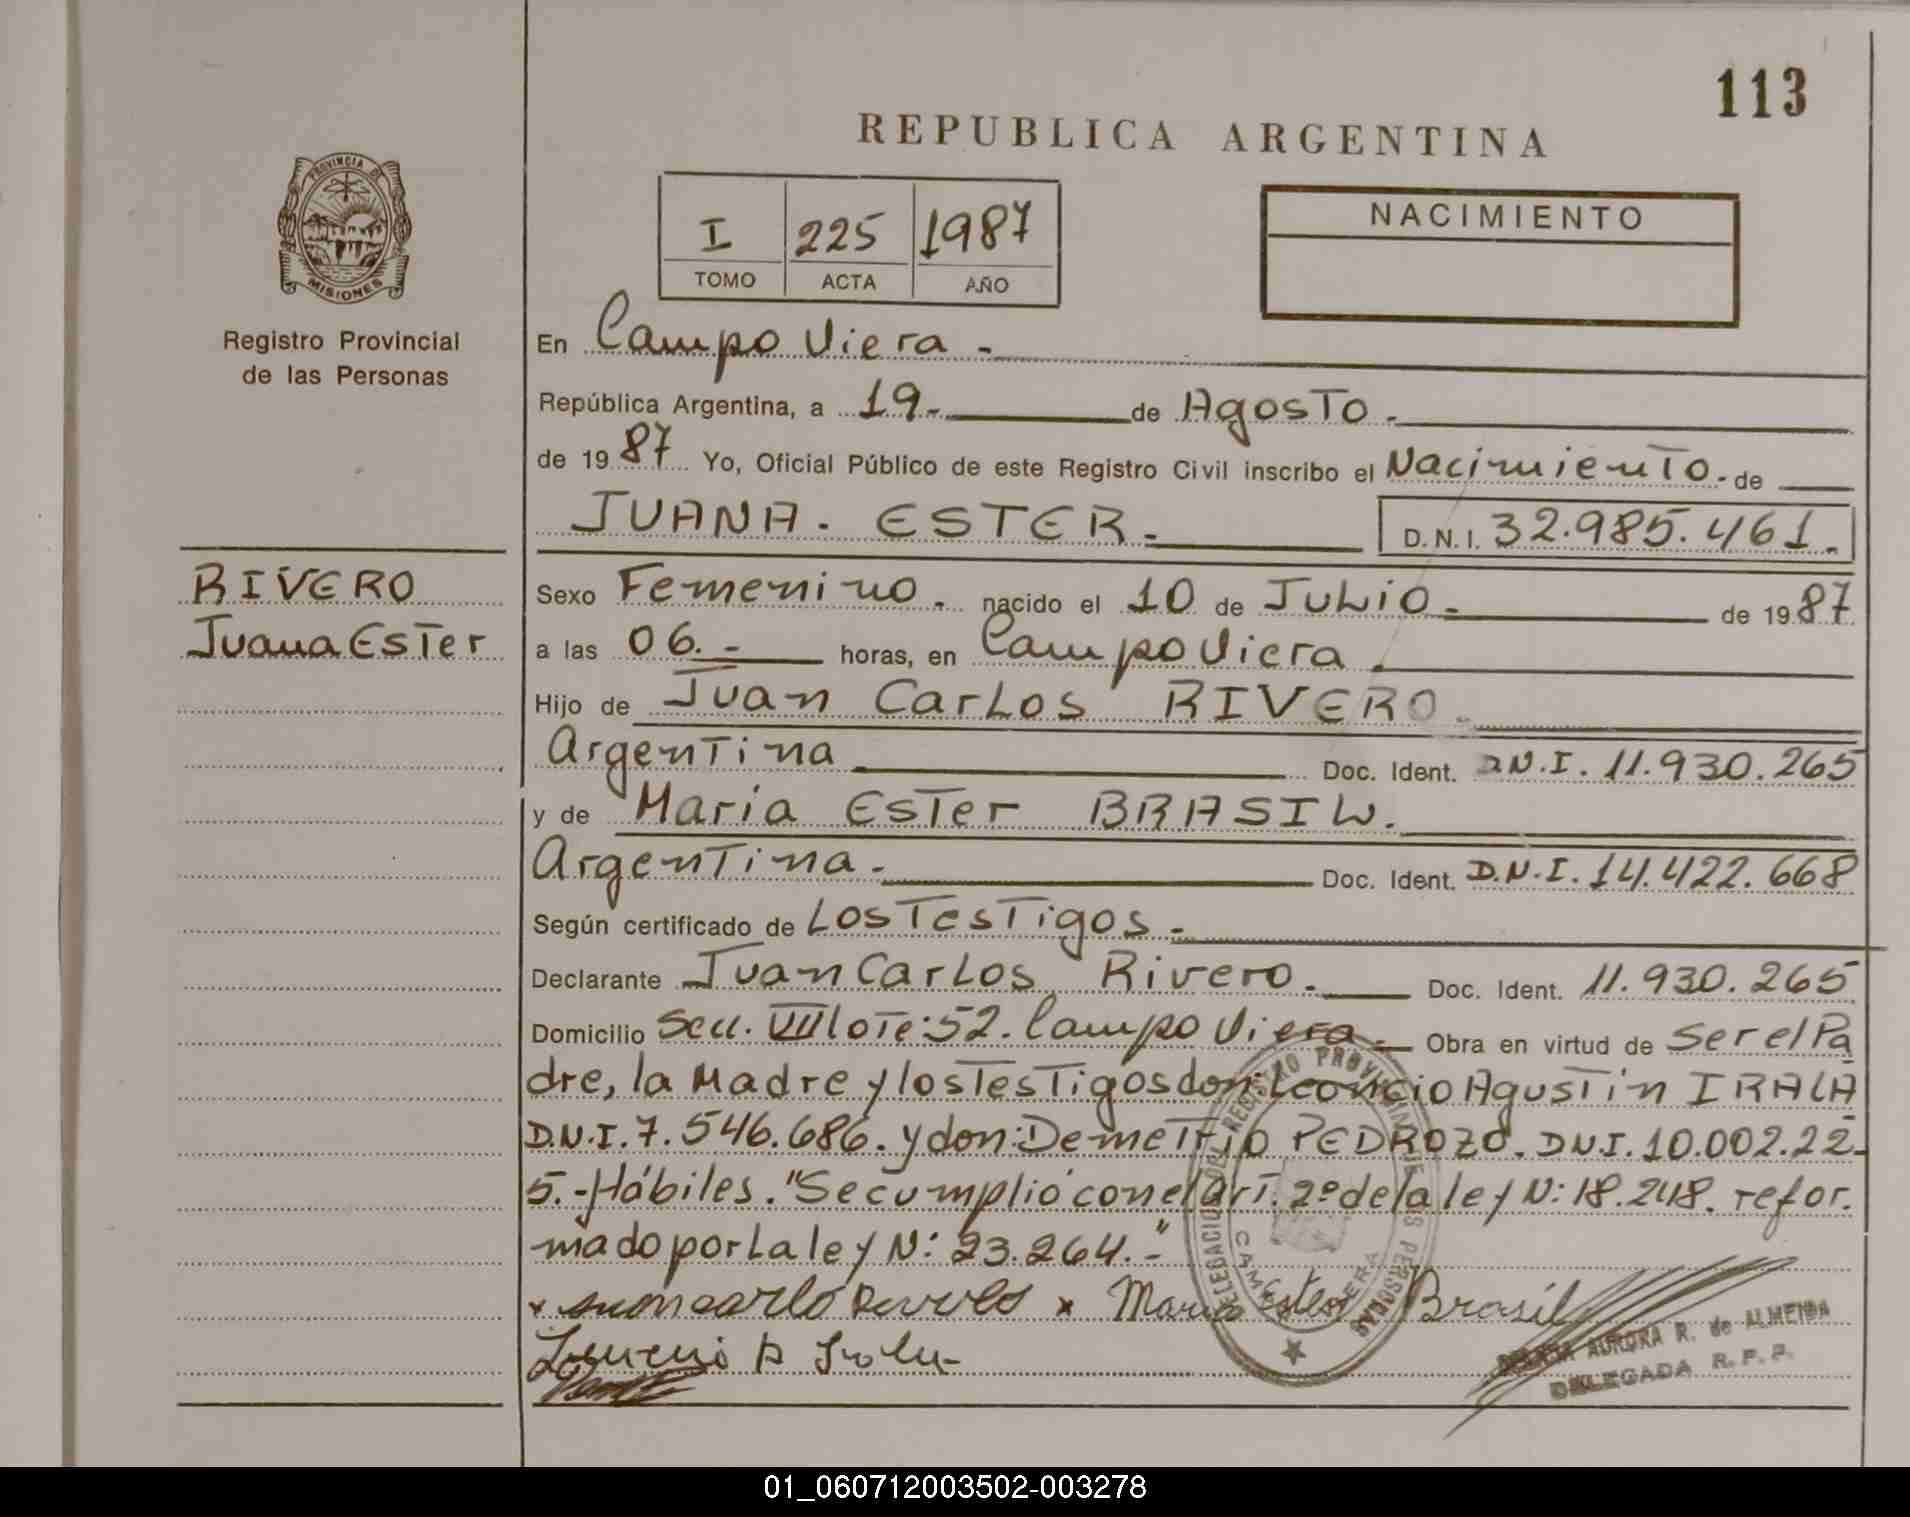 113
REPUBLICA ARGENTINA
PROVINCIA DE
MISIONES
Registro Provincial
de las Personas
I 225 1987
TOMO ACTA AÑO
NACIMIENTO
En Campo Viera -
República Argentina, a 19.- de Agosto.-
de 1987 Yo, Oficial Público de este Registro Civil inscribo el Nacimiento.- de
JUANA. ESTER.- D.N.I. 32.985.461.-
RIVERO
Juana Ester
Sexo Femenino. nacido el 10 de Julio.- de 1987
a las 06.- horas, en Campo Viera.
Hijo de Juan Carlos RIVERO.-
Argentina Doc. Ident. D.N.I. 11.930.265
y de Maria Ester BRASIL.
Argentina.- Doc. Ident. D.N.I. 14.422.668
Según certificado de Los Testigos.-
Declarante Juan Carlos Rivero.- Doc. Ident. 11.930.265
Domicilio Secc. VIII lote: 52. Campo Viera.- Obra en virtud de Ser el Pa
dre, la Madre y los Testigos don: Leoncio Agustin IRALA
D.N.I. 7.546.686. y don: Demetrio PEDROZO. D.N.I. 10.002.22-
5.- Hábiles. "Se cumplió con el Art. 2º de la ley N: 18.248. refor.
mado por La ley N: 23.264.-"
x x Maria Ester Brasil
DELEGACION DEL REGISTRO PROVINCIAL DE LAS PERSONAS
CAMPO VIERA
AURORA R. de ALMEIDA
DELEGADA R.P.P.
01_060712003502-003278